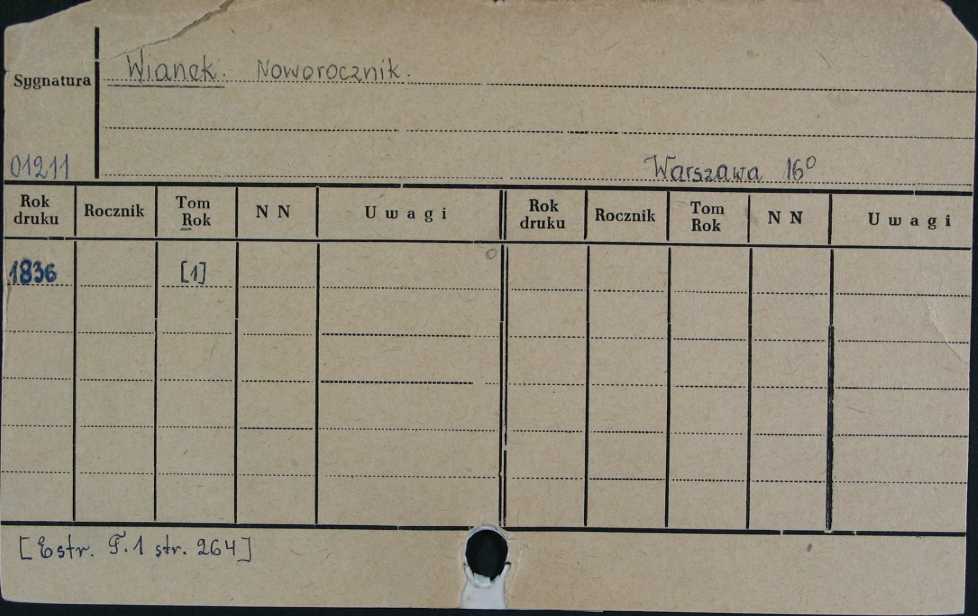 Wianek. Noworocznik.
Sygnatura
01211 Warszawa 16°
Rok druku Rocznik Tom Rok N N Uwagi Rok druku Rocznik Tom Rok N N Uwagi
1836 [1]
[Estr. T.1 str. 264]